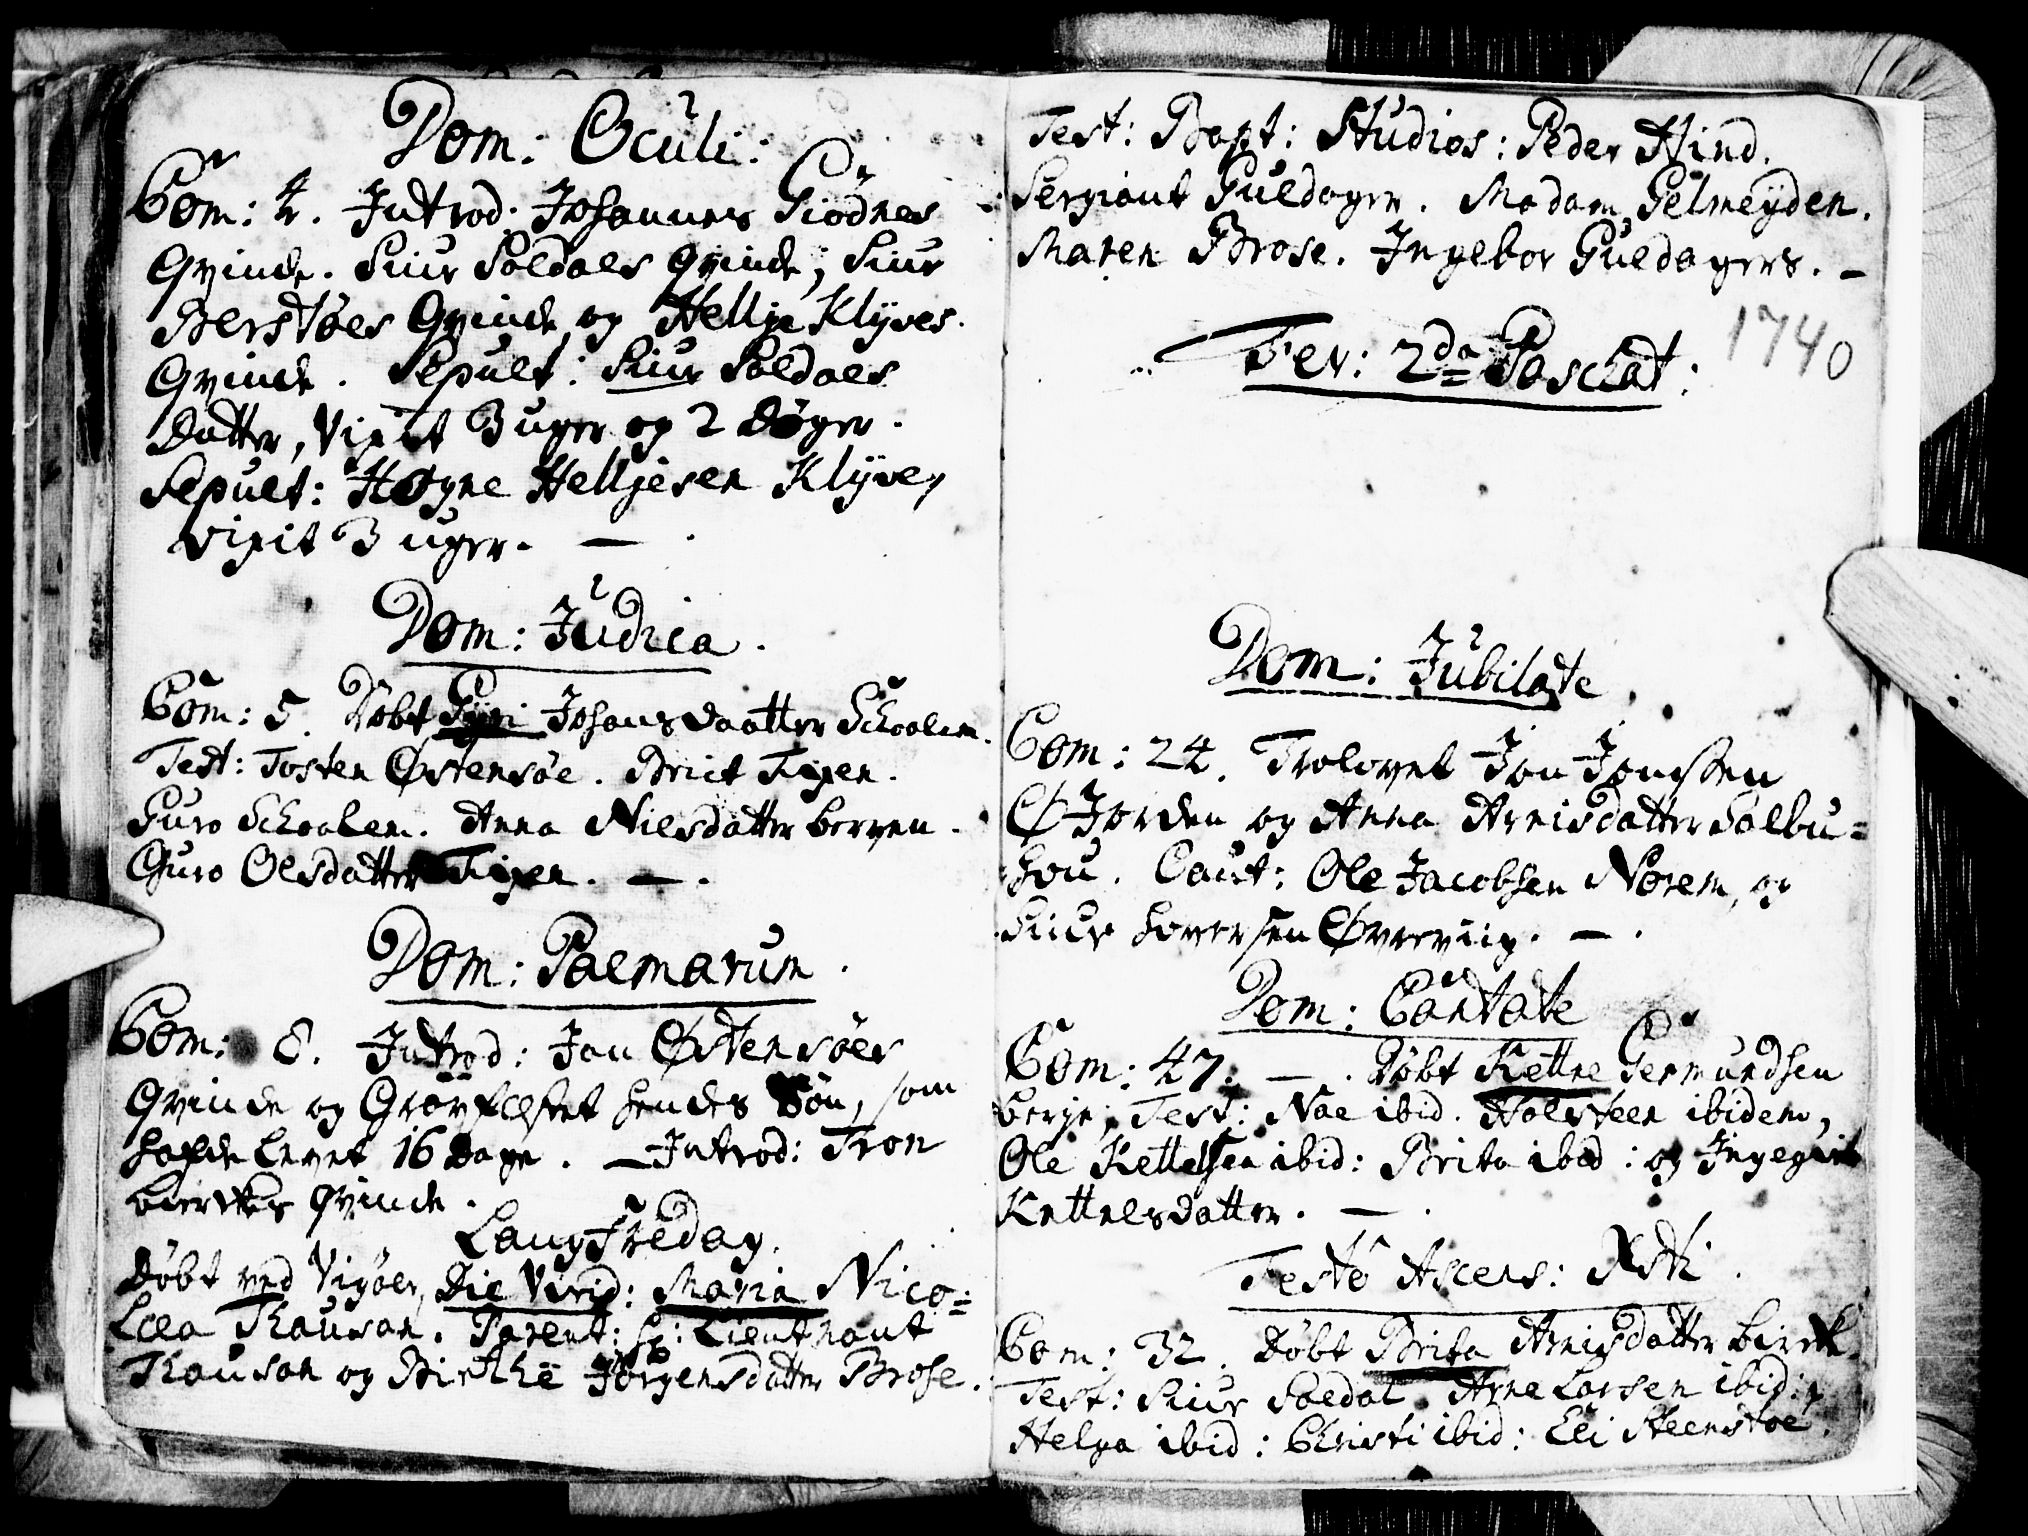 Dom: Oculi:
Com: 4. Introd: Johannes Giödnes
Qvinde. Siur Soldals Qvinde, Siur
Berstöes Qvinde og Hellje Klÿves
Qvinde. Sepult: Siur Soldals
Datter, Vixit 3 uger og 2 Døger.
Sepult: Hogne Helljesen Klÿve,
vixit 3 uger. —
Dom: Judica.
Com: 5. Döbt Gÿri Johansdaatter Schoalem.
Test: Tosten Östensöe. Brict
Guro Schoalem. Anna Nielsdatter Berven.
Guro Olsdatter —.
Dom: Palmarum.
Com: 8. Introd: Jon Östensöes
Qvinde og Gravfæstet hendes Sön, som
hafde levet 16 Dage. — Introd: Tron
Birckes Qvinde.
Lang Fredag.
Döbt ved Vigöer, Die Virid: Maria Nico=
læa Thauson. Parent: Hr: Lieutnant
Thauson og Birthe Jörgensdatter Brose.
Test: Bapt: Studios: Peder Hind.
Sergiant Guldager. Madam Gelmeÿden.
Maren Brose. Ingebor Guldagers. —
1740
Fer: 2da Paschat:
Dom: Jubilate
Com: 24. Trolovet Jon Jonssen
Ø Jorden og Anna Arnisdatter Solbu=
hou. Caut: Ole Jacobsen Norem, og
Siur Sjversen —.
Dom: Cantate
Com: 47. —. Döbt Kettle Germundsen
Berje; Test: Noe ibid. Holsteen ibidem,
Ole Kettelsen ibid: Brita ibid: og Ingegier
Kettelsdatter. —.
Festo Ascens: Xsti.
Com: 32. Döbt Brita Arnisdatter Birck.
Test: Siur Soldal. Arne Larsen ibid:
Helga ibid: Christi ibid: Eli Steenstöe.